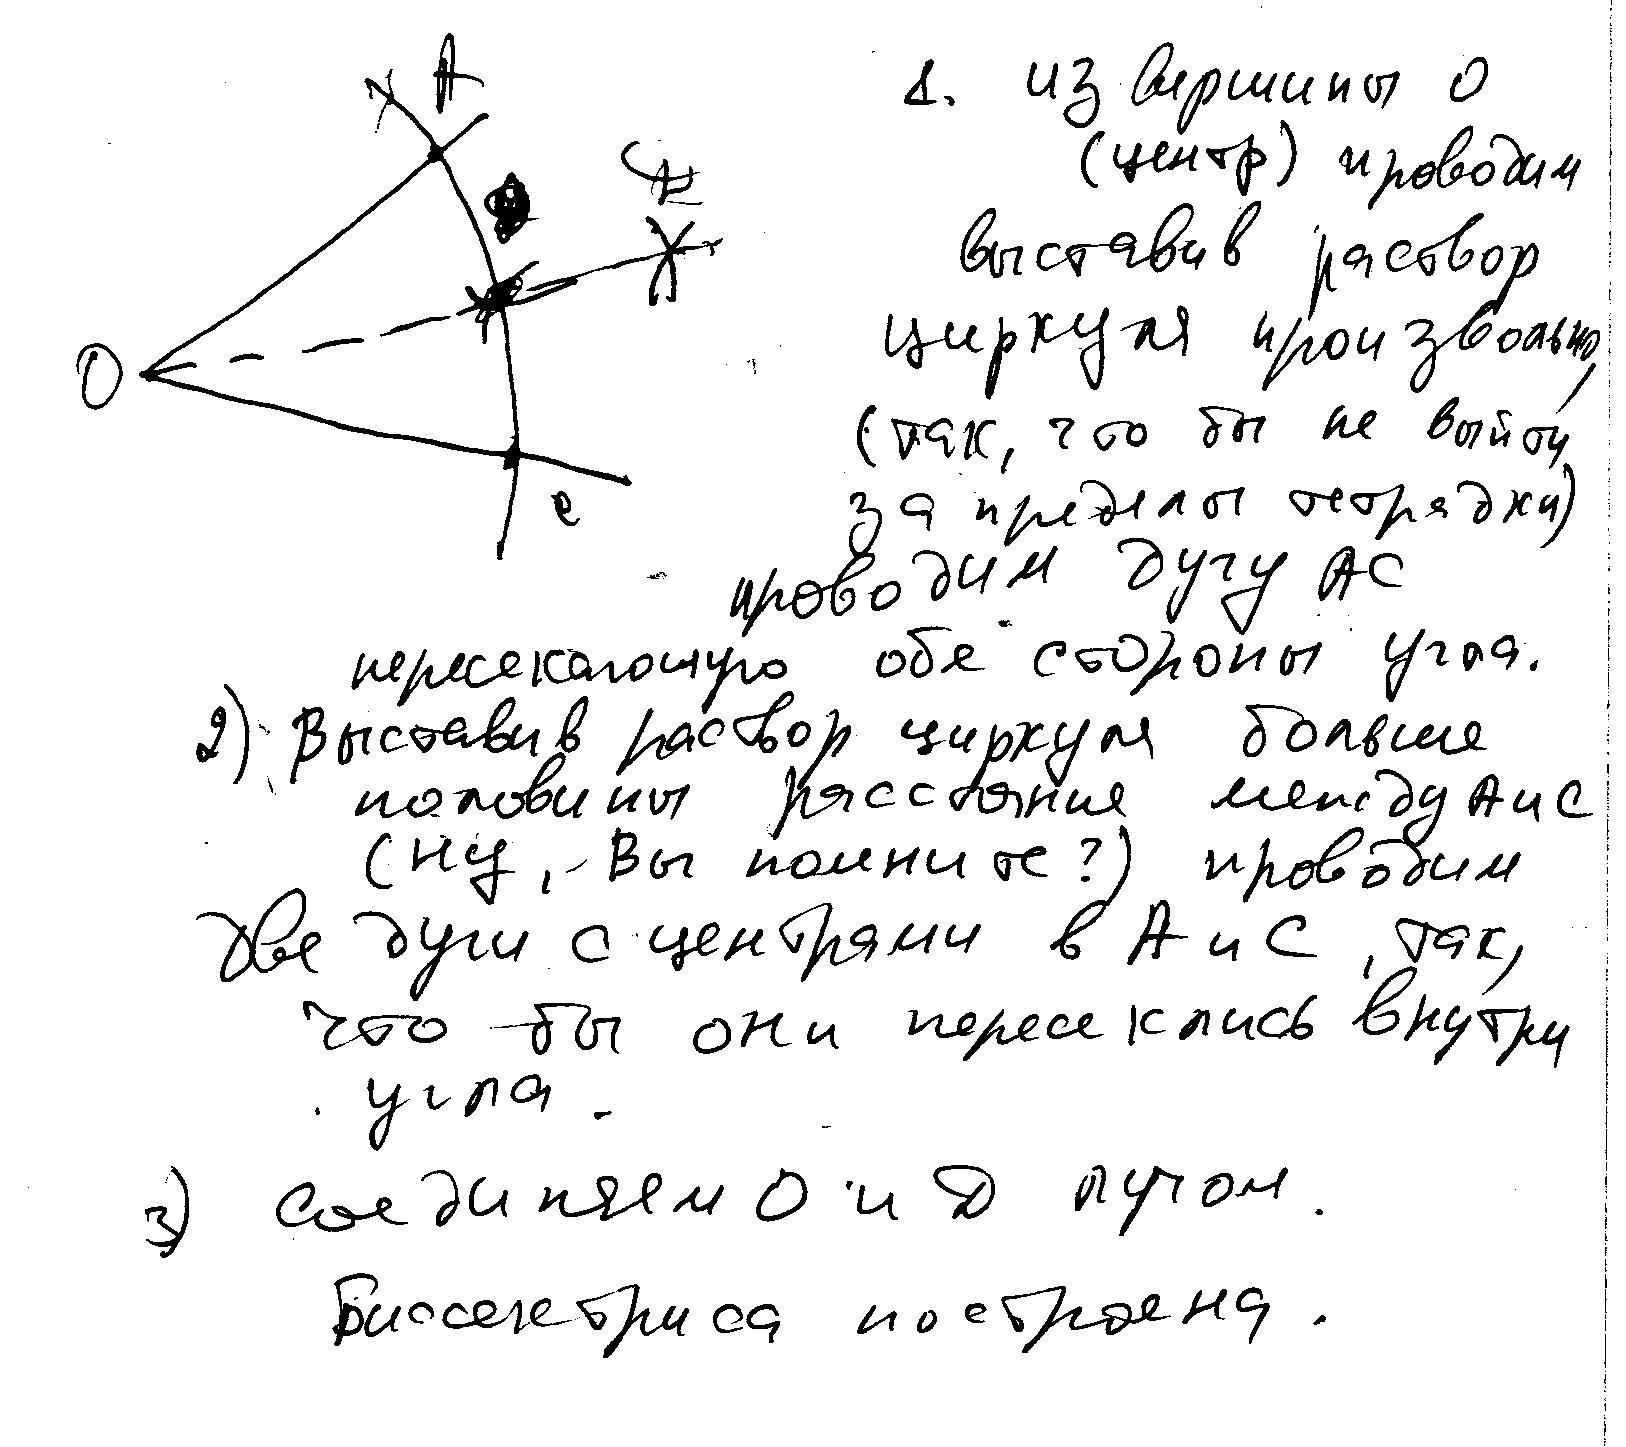 A
O
с
1. из вершины О
(центр) проводим
выставив раствор
циркуля произвольно,
(так, что бы не выйти
за пределы тетрадки)
проводим дугу АС
пересекающую обе стороны угла.
2) Выставив раствор циркуля больше
половины расстояние между А и С
(Ну, Вы помните?) проводим
две дуги с центрами в А и С, так,
что бы они пересеклись внутри
угла.
3) Соединяем О и D лучом.
Биссектриса построена.